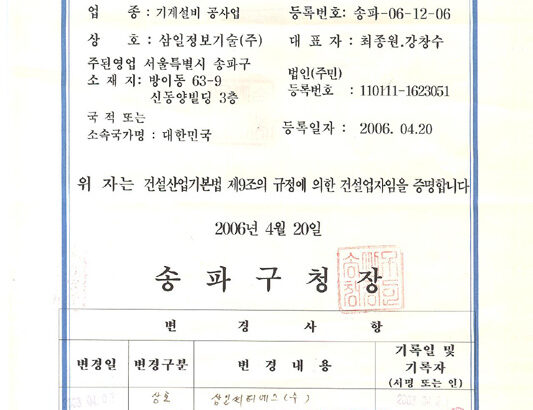 업 종 : 기계설비 공사업 등록번호: 송파-06-12-06
상 호 : 삼일정보기술(주) 대 표 자 : 최종원.강창수
주된영업 서울특별시 송파구
소 재 지: 방이동 63-9 법인(주민)
신동양빌딩 3층 등록번호 : 110111-1623051
국 적 또는
소속국가명 : 대한민국 등록일자 : 2006. 04.20
위 자는 건설산업기본법 제9조의 규정에 의한 건설업자임을 증명합니다
2006년 4월 20일
송 파 구 청 장
변 경 사 항
변경일 변경구분 변 경 내 용 기록일 및
기록자
(서명 또는 인)
상호